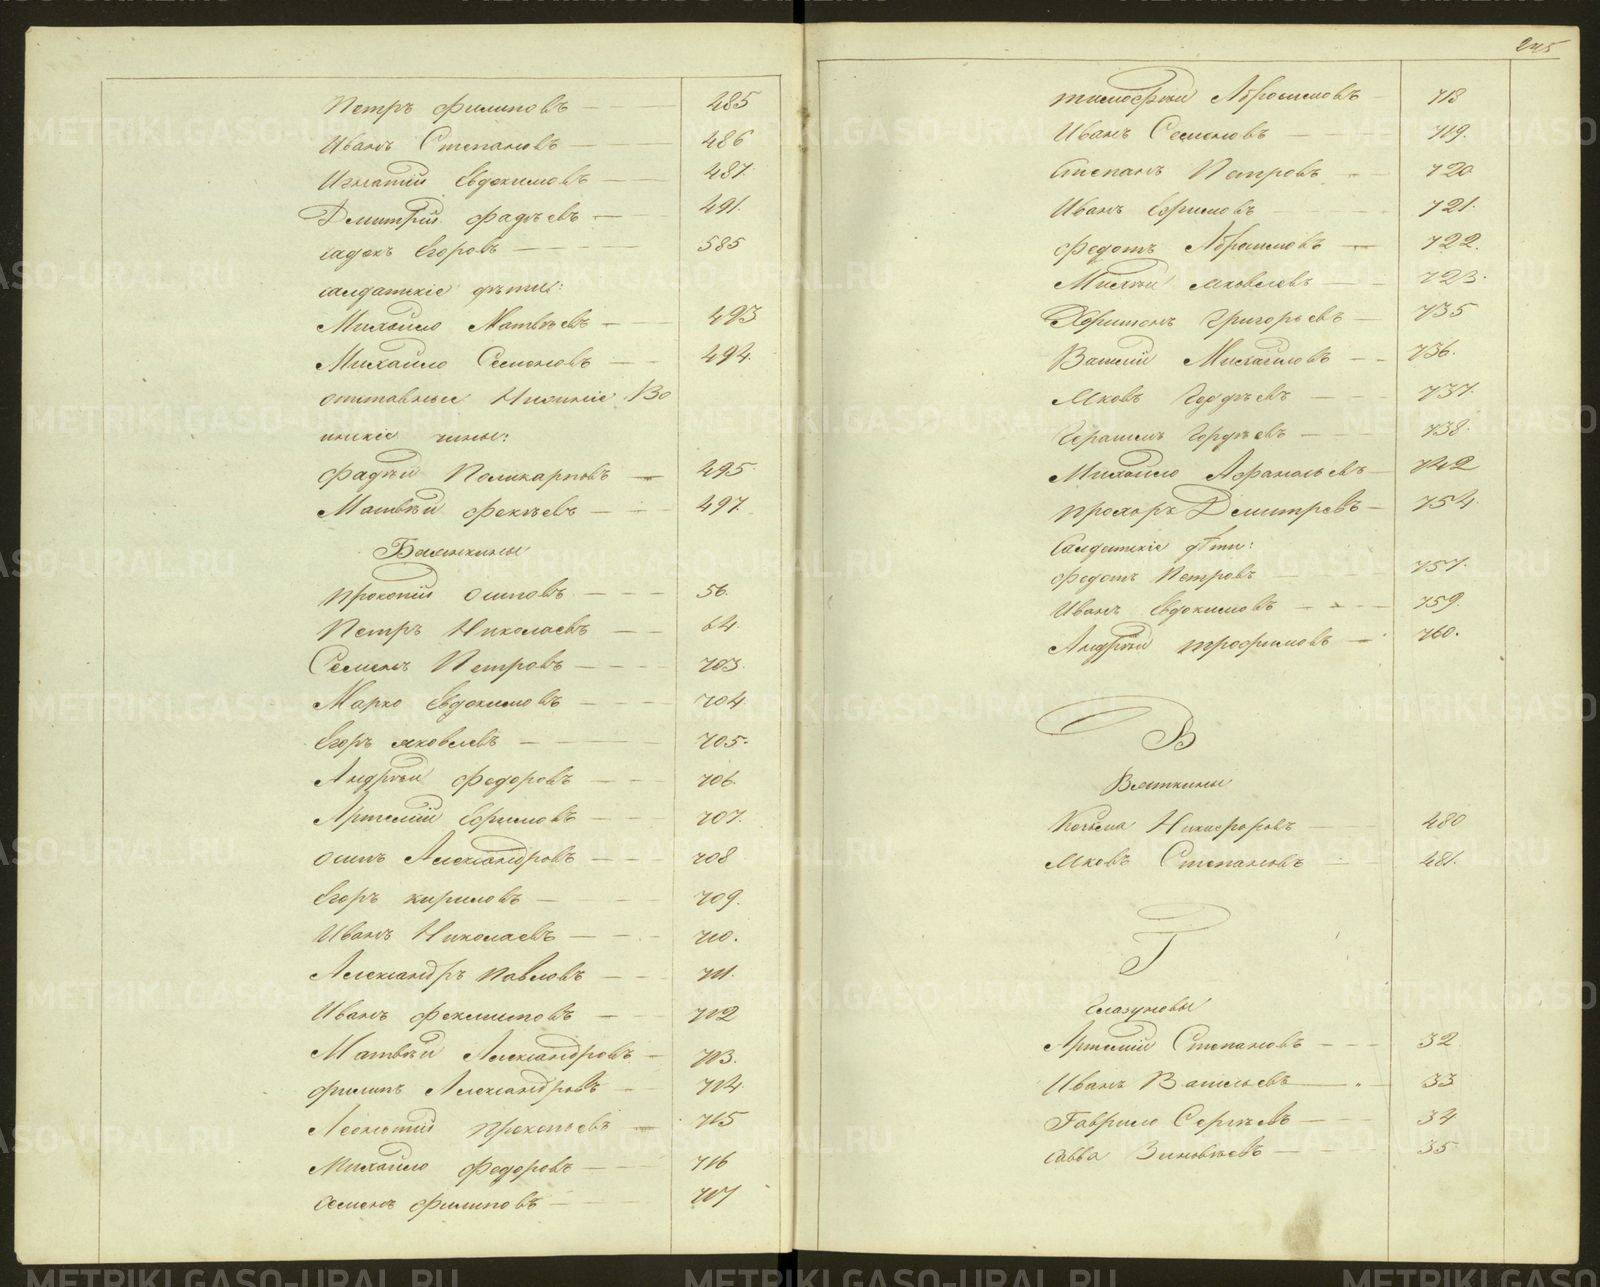 Петръ Филиповъ 485
Иванъ Степановъ 486
Игнатий Евдокимовъ 487
Дмитрий Фадѣевъ 491.
Егоровъ 585
салдатские дѣти:
Михайло Матвѣевъ 493
Михайло Семеновъ 494.
отставные Нижние Во
инские чины:
Фадѣй Поликарповъ 495
Матвѣй Фокѣевъ 497.
Балянкины
Прокопий Осиповъ 56.
Петръ Николаевъ 64.
Семенъ Петровъ 703.
Марко Евдокимовъ 704
Егоръ яковлевъ 705.
Андрѣй Федоровъ 706
Артемий Ефимовъ 707.
Осипъ Александровъ 708
Егоръ кириловъ 709.
Иванъ Николаевъ 710.
Александръ Павловъ 711.
Иванъ Феклистовъ 712
Матвѣй Александровъ 713.
Филипъ Александровъ 714.
Леонтий Прокопьевъ 715
Михайло Федоровъ 716
Семенъ Филиповъ 717
245
тимофѣй Абросимовъ 718
Иванъ Семеновъ 719.
Степанъ Петровъ 720
Иванъ Ефимовъ 721.
Федотъ Абросимовъ 722.
яковлевъ 723.
Харитонъ Григорьевъ 735
Василий Михайловъ 736.
Яковъ Гордѣевъ 737.
Герасимъ Гордѣевъ 738.
Михайло Афанасьевъ 742
прохоръ Дмитревъ 754.
Салдатские дѣти:
Федотъ Петровъ 757.
Иванъ Евдокимовъ 759.
Андрѣй трофимовъ 760.
В
Вяткины
Козьма Никифоровъ 480
Яковъ Степановъ 481.
Г
Глазуновы
Артемий Степановъ 32
Иванъ Васильевъ 33
Гаврило Сергѣевъ 34
Савва Зиновьевъ 35